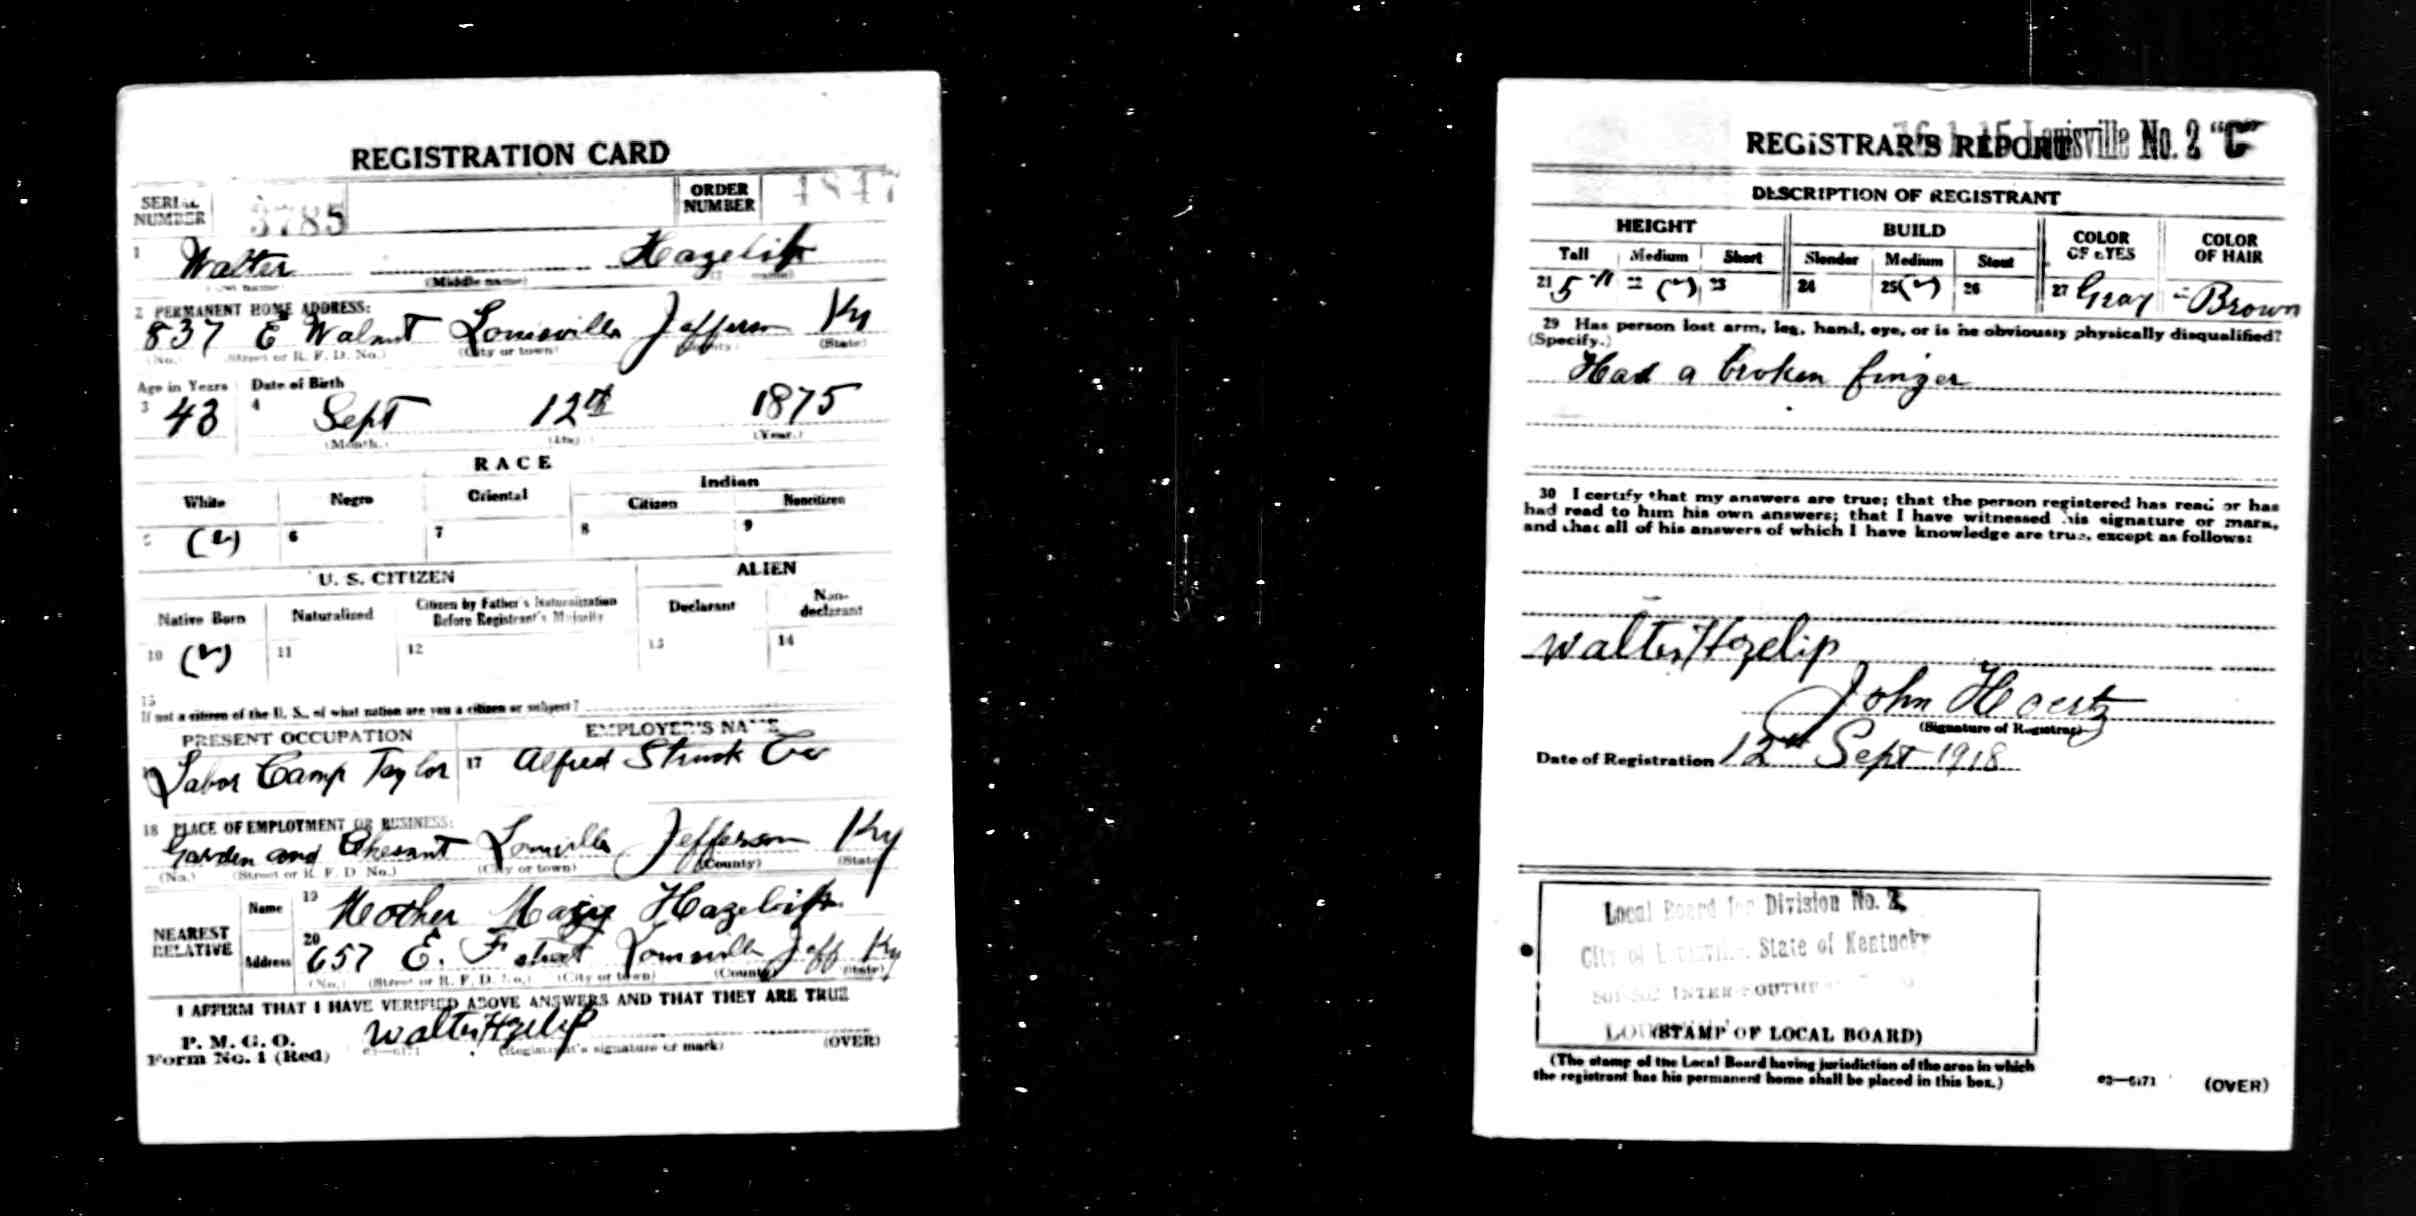 REGISTRATION CARD
SERIAL NUMBER 3785 ORDER NUMBER 4847
1 Walter Hazelip
(Middle name)
2 PERMANENT HOME ADDRESS:
837 E Walnut Louisville Jefferson Ky
(No.) (Street or R. F. D. No.) (City or town) (County) (State)
Age in Years Date of Birth
3 43 4 Sept 12th 1875
(Month.) (Day.) (Year.)
RACE
White Negro Oriental Indian
Citizen Noncitizen
5 6 7 8 9
U. S. CITIZEN ALIEN
Native Born Naturalized Citizen by Father's Naturalization Before Registrant's Majority Declarant Non-declarant
10 11 12 13 14
15
If not a citizen of the U. S., of what nation are you a citizen or subject?
PRESENT OCCUPATION EMPLOYER'S NAME
Labor Camp Taylor 17 Alfred Struck Co
18 PLACE OF EMPLOYMENT OR BUSINESS:
Garden and Chesnut Louisville Jefferson Ky
(No.) (Street or R. F. D. No.) (City or town) (County) (State)
NEAREST RELATIVE Name 19 Mother Hazelip
Address 20 657 E. street Louisville Jeff Ky
(No.) (Street or R. F. D. No.) (City or town) (County) (State)
I AFFIRM THAT I HAVE VERIFIED ABOVE ANSWERS AND THAT THEY ARE TRUE
P. M. G. O.
Form No. 1 (Red) Walter Hzelip
03—6171 (Registrant's signature or mark) (OVER)
REGISTRAR'S REPORT
Louisville No. 2 "C"
DESCRIPTION OF REGISTRANT
HEIGHT BUILD COLOR OF EYES COLOR OF HAIR
Tall Medium Short Slender Medium Stout
21 5 22 23 24 25 26 27 Gray Brown
29 Has person lost arm, leg, hand, eye, or is he obviously physically disqualified?
(Specify.)
Had a broken finger
30 I certify that my answers are true; that the person registered has read or has
had read to him his own answers; that I have witnessed his signature or mark,
and that all of his answers of which I have knowledge are true, except as follows:
Walter Hzelip
John Hoertz
(Signature of Registrar)
Date of Registration 12th Sept 1918
Local Board for Division No. 2,
City of Louisville, State of Kentucky
(STAMP OF LOCAL BOARD)
(The stamp of the Local Board having jurisdiction of the area in which
the registrant has his permanent home shall be placed in this box.)
03—6171 (OVER)